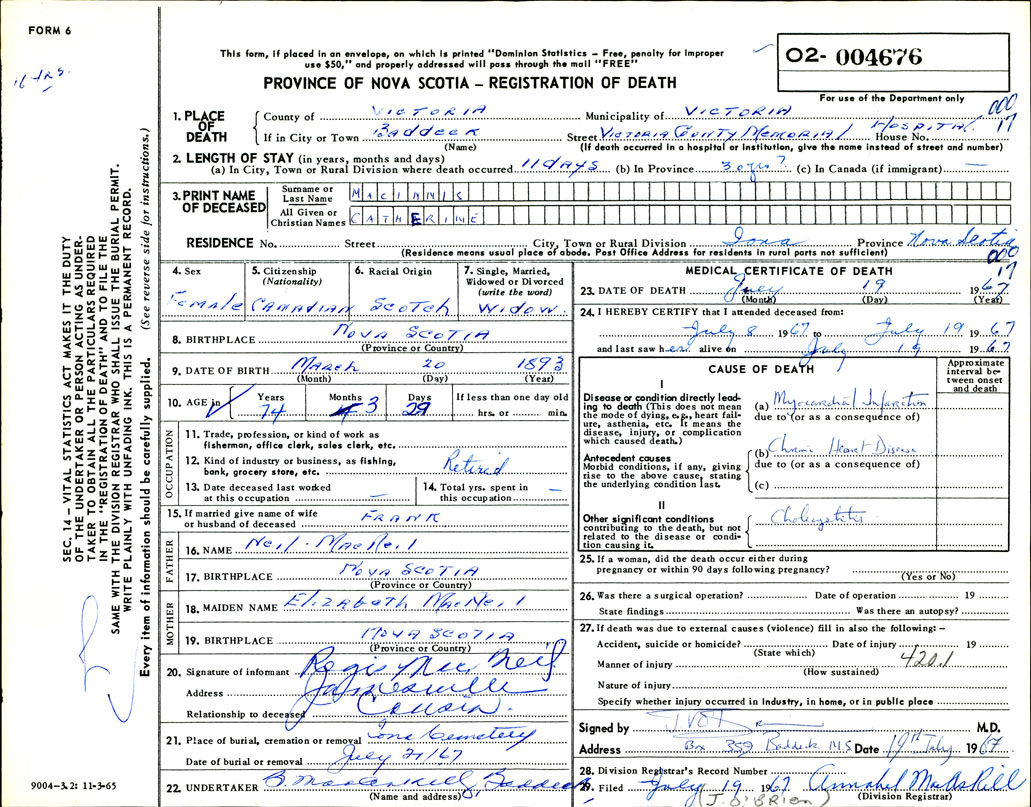 FORM 6
16 yrs.
This form, if placed in an envelope, on which is printed "Dominion Statistics – Free, penalty for improper
use $50," and properly addressed will pass through the mail "FREE"
PROVINCE OF NOVA SCOTIA – REGISTRATION OF DEATH
02- 004676
For use of the Department only
000
17
1. PLACE OF DEATH
County of VICTORIA Municipality of VICTORIA
If in City or Town Baddeck (Name) Street Victoria County Memorial Hospital House No.
(If death occurred in a hospital or institution, give the name instead of street and number)
2. LENGTH OF STAY (in years, months and days)
(a) In City, Town or Rural Division where death occurred 11 days (b) In Province (c) In Canada (if immigrant) —
3. PRINT NAME OF DECEASED
Surname or Last Name MACINNIS
All Given or Christian Names CATHERINE
RESIDENCE No. Street City, Town or Rural Division Iona Province Nova Scotia
(Residence means usual place of abode. Post Office Address for residents in rural parts not sufficient)
000
17
4. Sex Female
5. Citizenship (Nationality) Canadian
6. Racial Origin Scotch
7. Single, Married, Widowed or Divorced (write the word) Widow
8. BIRTHPLACE NOVA SCOTIA
(Province or Country)
9. DATE OF BIRTH March 20 1893
(Month) (Day) (Year)
10. AGE in Years 74 Months 3 Days 29 If less than one day old hrs. or min.
OCCUPATION
11. Trade, profession, or kind of work as
fisherman, office clerk, sales clerk, etc.
12. Kind of industry or business, as fishing,
bank, grocery store, etc. Retired
13. Date deceased last worked
at this occupation —
14. Total yrs. spent in
this occupation —
15. If married give name of wife
or husband of deceased FRANK
FATHER
16. NAME Neil MacNeil
17. BIRTHPLACE NOVA SCOTIA
(Province or Country)
MOTHER
18. MAIDEN NAME Elizabeth MacNeil
19. BIRTHPLACE NOVA SCOTIA
(Province or Country)
20. Signature of informant Regis MacNeil
Address Jamesville
Relationship to deceased Cousin.
21. Place of burial, cremation or removal Iona Cemetery
Date of burial or removal July 21/67
22. UNDERTAKER Baddeck
(Name and address)
MEDICAL CERTIFICATE OF DEATH
23. DATE OF DEATH July 19 1967
(Month) (Day) (Year)
24. I HEREBY CERTIFY that I attended deceased from:
July 8 1967 to July 19 1967
and last saw her alive on July 19 1967
CAUSE OF DEATH
Approximate interval between onset and death
I
Disease or condition directly leading to death (This does not
mean the mode of dying, e.g., heart failure, asthenia, etc. It means the
disease, injury, or complication
which caused death.)
(a) Myocardial Infarction
due to (or as a consequence of)
Antecedent causes
Morbid conditions, if any, giving
rise to the above cause, stating
the underlying condition last.
(b) Chronic Heart Disease
due to (or as a consequence of)
(c)
II
Other significant conditions
contributing to the death, but not
related to the disease or condition causing it.
Cholecystitis
25. If a woman, did the death occur either during
pregnancy or within 90 days following pregnancy?
(Yes or No)
26. Was there a surgical operation? Date of operation 19
State findings Was there an autopsy?
27. If death was due to external causes (violence) fill in also the following: –
Accident, suicide or homicide? Date of injury 19
(State which)
420.1
Manner of injury
(How sustained)
Nature of injury
Specify whether injury occurred in industry, in home, or in public place
Signed by M.D.
Address Box 359 Baddeck N.S Date 19th July 1967
28. Division Registrar's Record Number
29. Filed July 19 1967 Annabel MacAskill
(J. O'BRIEN) (Division Registrar)
SEC. 14 – VITAL STATISTICS ACT MAKES IT THE DUTY
OF THE UNDERTAKER OR PERSON ACTING AS UNDER-
TAKER TO OBTAIN ALL THE PARTICULARS REQUIRED
IN THE "REGISTRATION OF DEATH" AND TO FILE THE
SAME WITH THE DIVISION REGISTRAR WHO SHALL ISSUE THE BURIAL PERMIT.
WRITE PLAINLY WITH UNFADING INK. THIS IS A PERMANENT RECORD.
Every item of information should be carefully supplied. (See reverse side for instructions.)
9004-3.2: 11-3-65